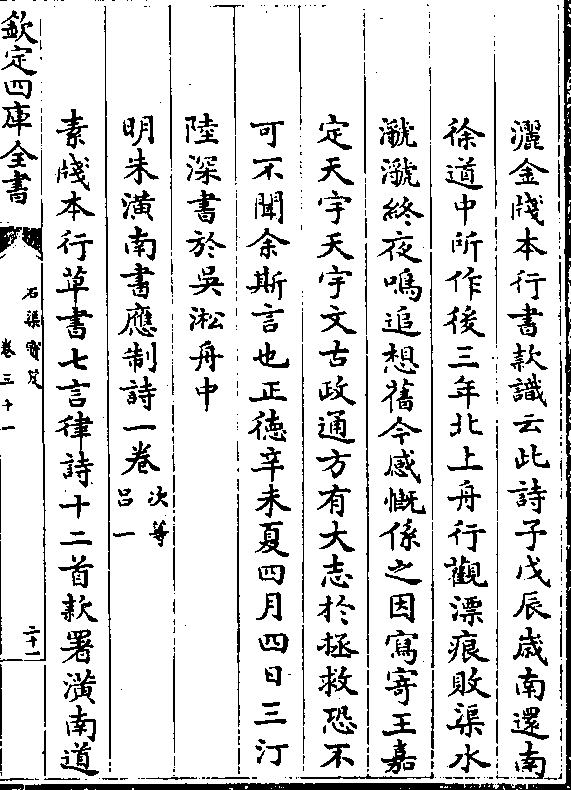 灑金牋本行書款識云此詩子戊辰歳南還南
徐道中所作後三年北上舟行觀漂痕敗渠水
漉漉終夜鳴追想舊今感慨係之因寫寄王嘉
定天宇天宇文古政通方有大志於拯救恐不
可不聞余斯言也正德辛未夏四月四日三汀
陸深書於吳淞舟中
明朱瀇南書應制詩一卷 次等 呂一
素牋本行草書七言律詩十二首款署瀇南道
欽定四庫全書
石渠寳笈
卷三十一
二十一